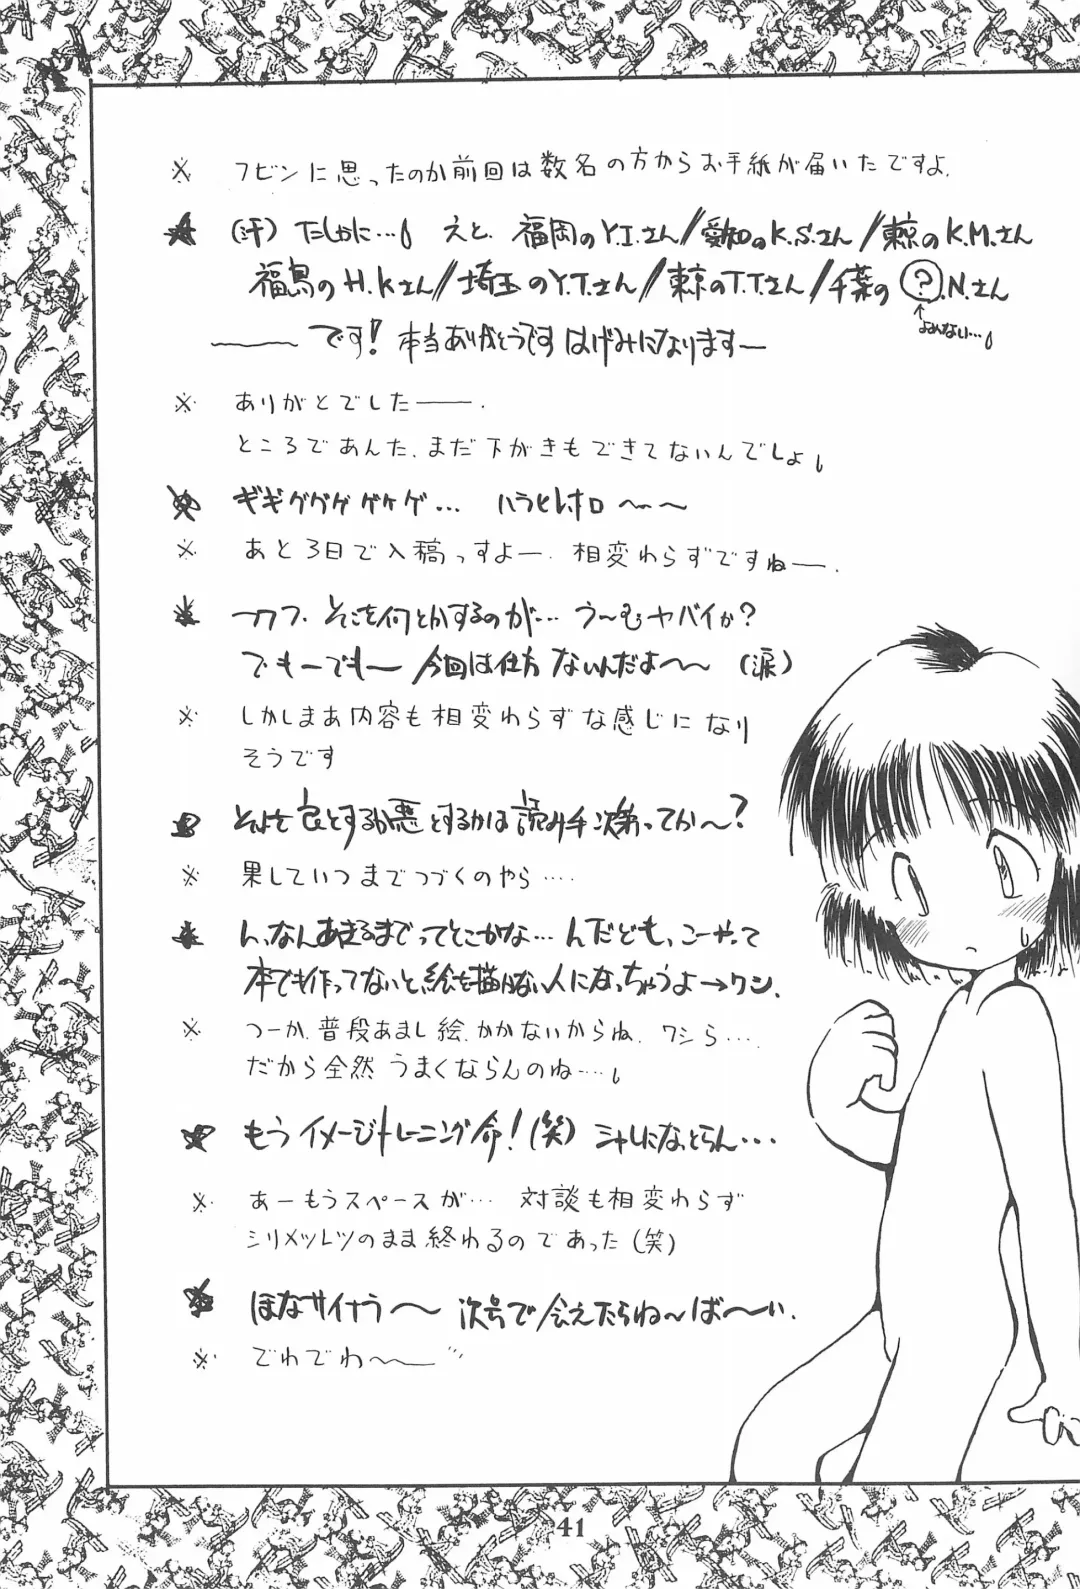 ※ フビンに思ったのか前回は数名の方からお手紙が届いたですよ.
★ (汗) たしかに…! えと、福岡のY.I.さん/愛知のK.S.さん/東京のK.M.さん
福島のH.Kさん/埼玉のY.T.さん/東京のT.Tさん/千葉の?.N.さん
↑よめない…!
――です! 本当ありがとうです はげみになりますー
※ ありがとでした――.
ところであんた、まだ下がきもできてないんでしょ!
★ ギギグゲゲゲゲ… ハラヒレホロ~~
※ あと3日で入稿っすよー. 相変わらずですねー.
★ フフフ. そこを何とかするのが… う~むヤバイか?
でもーでもー 今回は仕方ないんだよ~~ (涙)
※ しかしまあ内容も相変わらずな感じになり
そうです
★ それを良とするか悪とするかは読み手次第ってか~?
※ 果していつまでつづくのやら….
★ ん、なんあきるまでってとこかな… んだども、こーやって
本でも作ってないと、絵も描かない人になっちゃうよ→ワシ.
※ つーか、普段あまし絵、かかないからね. ワシら….
だから全然うまくならんのね…!
★ もうイメージトレーニング命!(笑) シャレになっとらん…
※ あーもうスペースが… 対談も相変わらず
シリメツレツのまま終わるのであった(笑)
★ ほなサイナラ~ 次号で会えたらね~ば~い.
※ でわでわ~
41